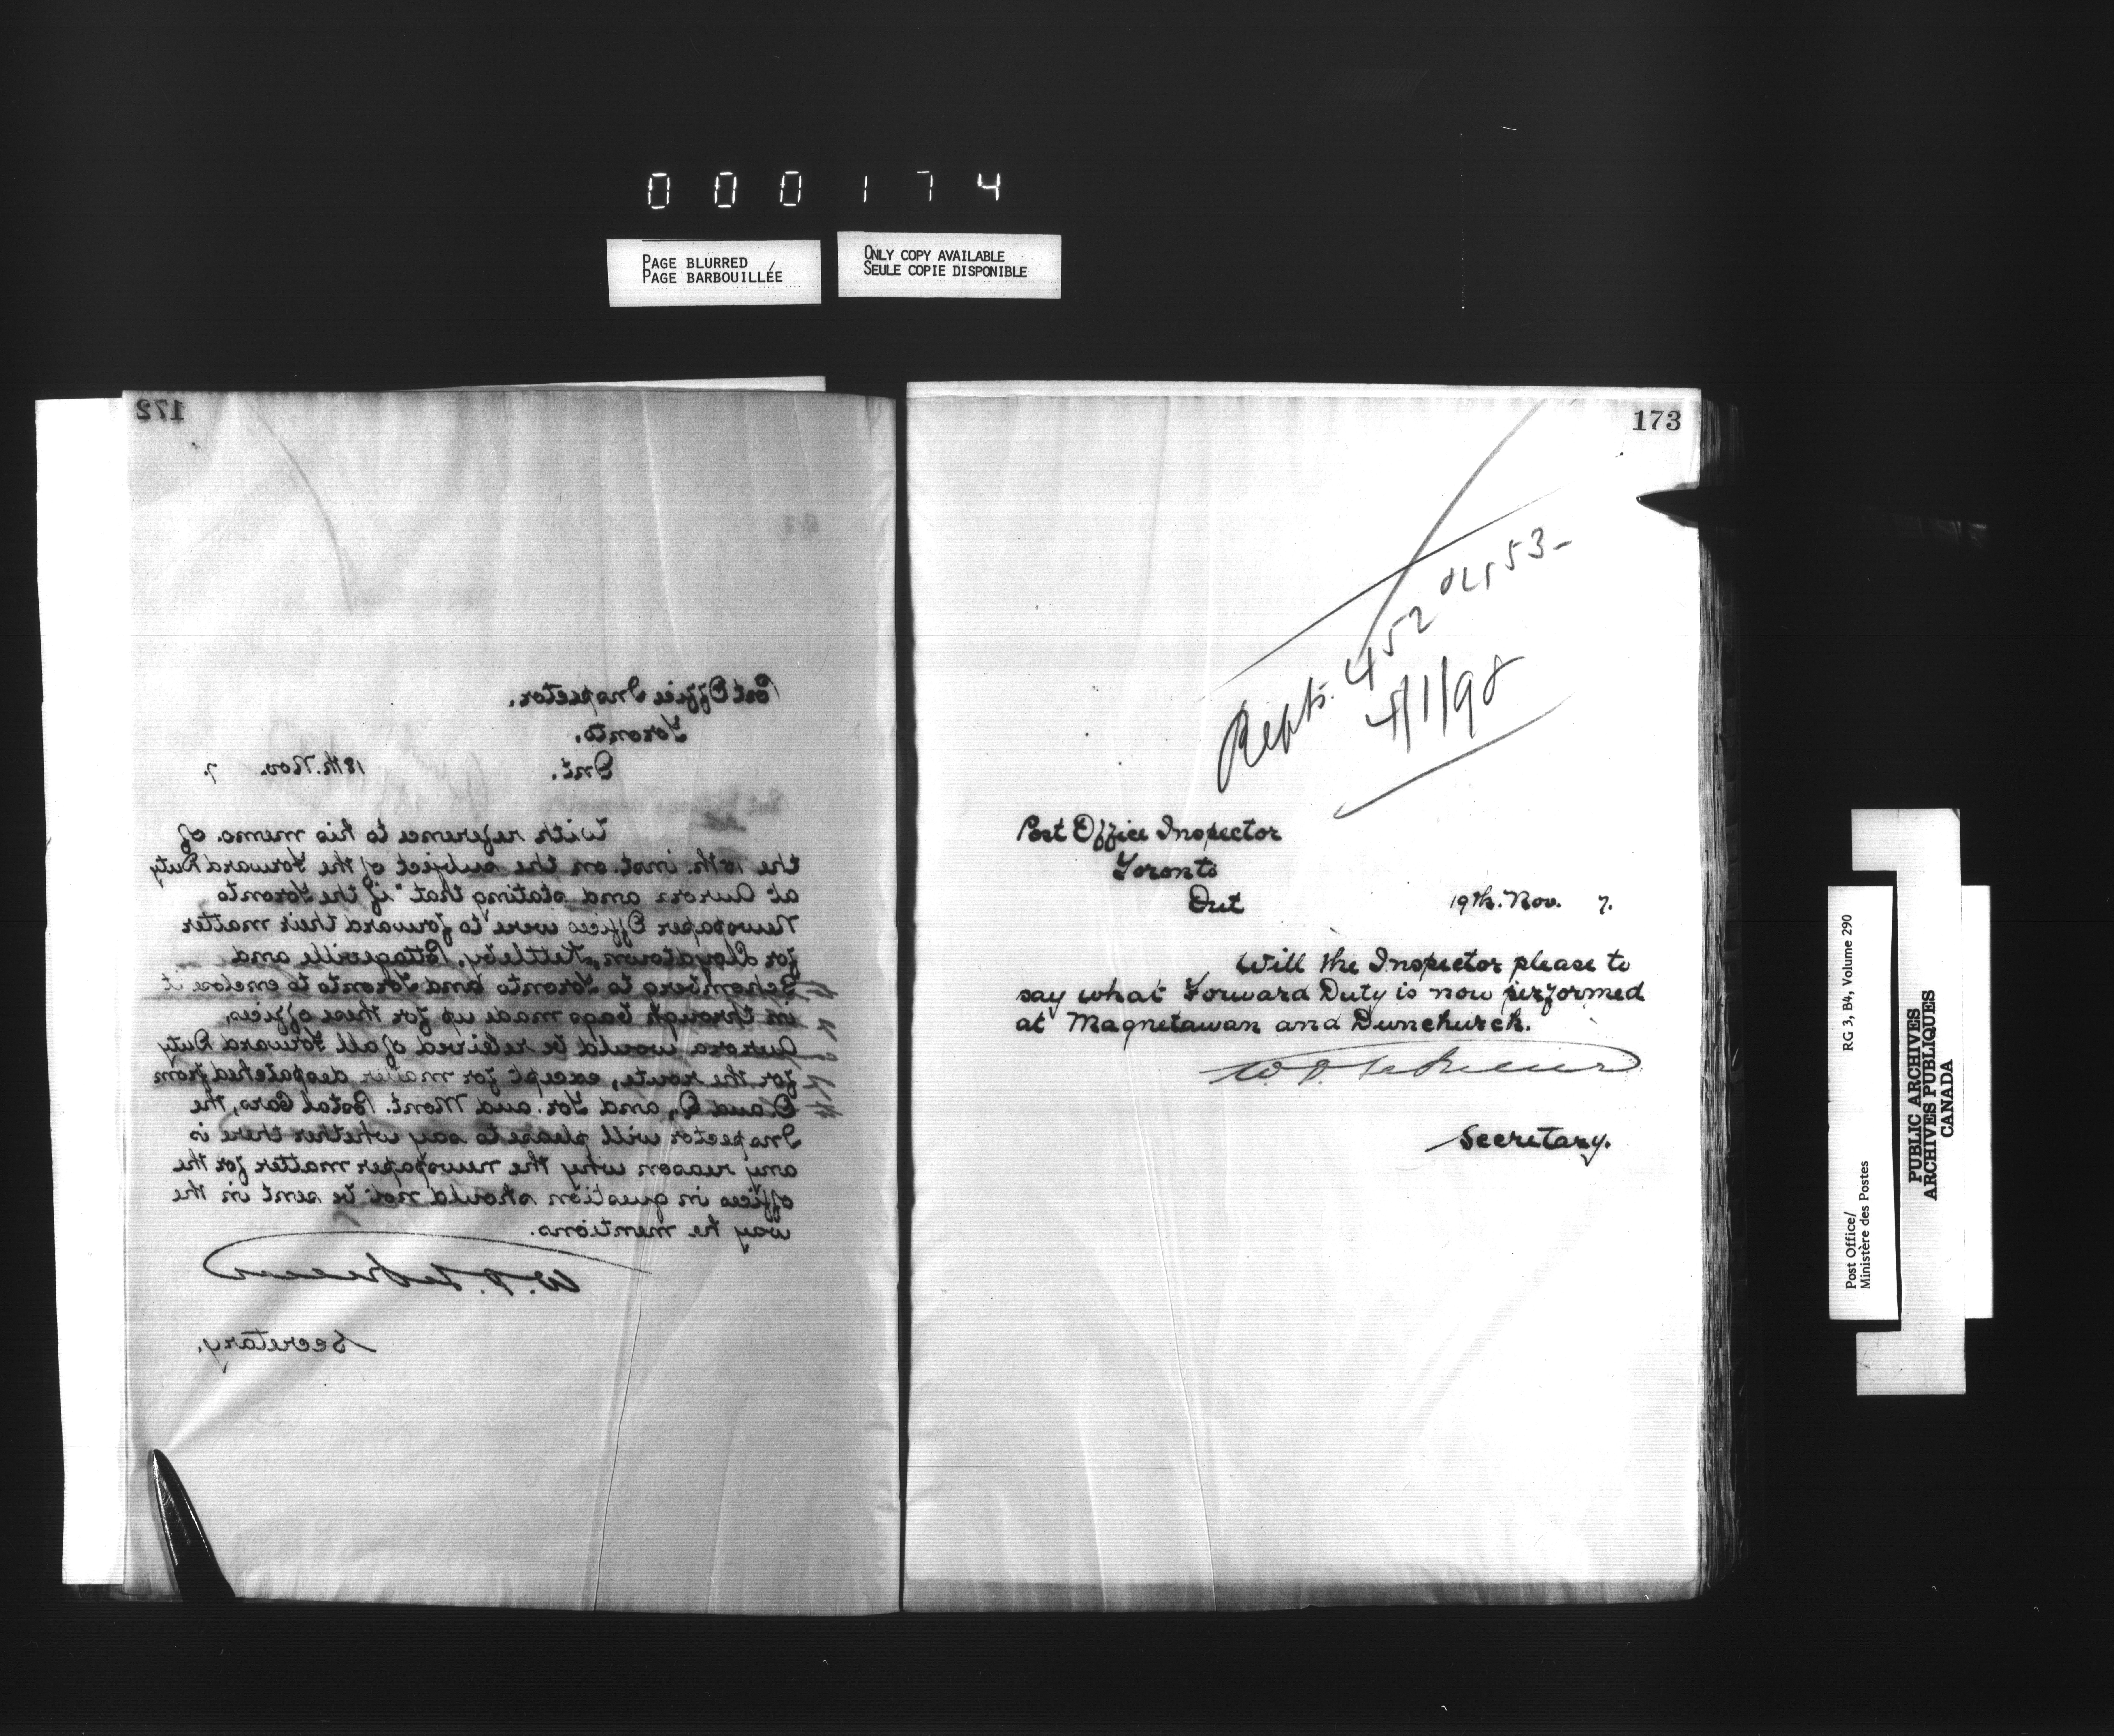 000174
PAGE BLURRED
PAGE BARBOUILLÉE
ONLY COPY AVAILABLE
SEULE COPIE DISPONIBLE
172
Post Office Inspector.
Toronto.
Ont. 18th. Nov. 7.
With reference to his memo. of
the 15th. inst. on the subject of the Forward Duty
at Aurora and stating that "if the Toronto
Newspaper Offices were to forward their matter
for Lloydtown, Kettleby, Pottageville and
Schomberg to Toronto and Toronto to enclose it
in through bags made up for these offices,
Aurora would be relieved of all Forward Duty
for the route, except for matter despatched from
and Tor. and Mont. Postal Cars, the
Inspector will please to say whether there is
any reason why the newspaper matter for the
offices in question should not be sent in the
way he mentions.
Secretary.
173
Repts. 452 453-
4/1/98
Post Office Inspector
Toronto
Ont 19th. Nov. 7.
Will the Inspector please to
say what Forward Duty is now performed
at Magnetawan and Dunchurch.
Secretary.
Post Office/
Ministère des Postes
RG 3, B4, Volume 290
PUBLIC ARCHIVES
ARCHIVES PUBLIQUES
CANADA